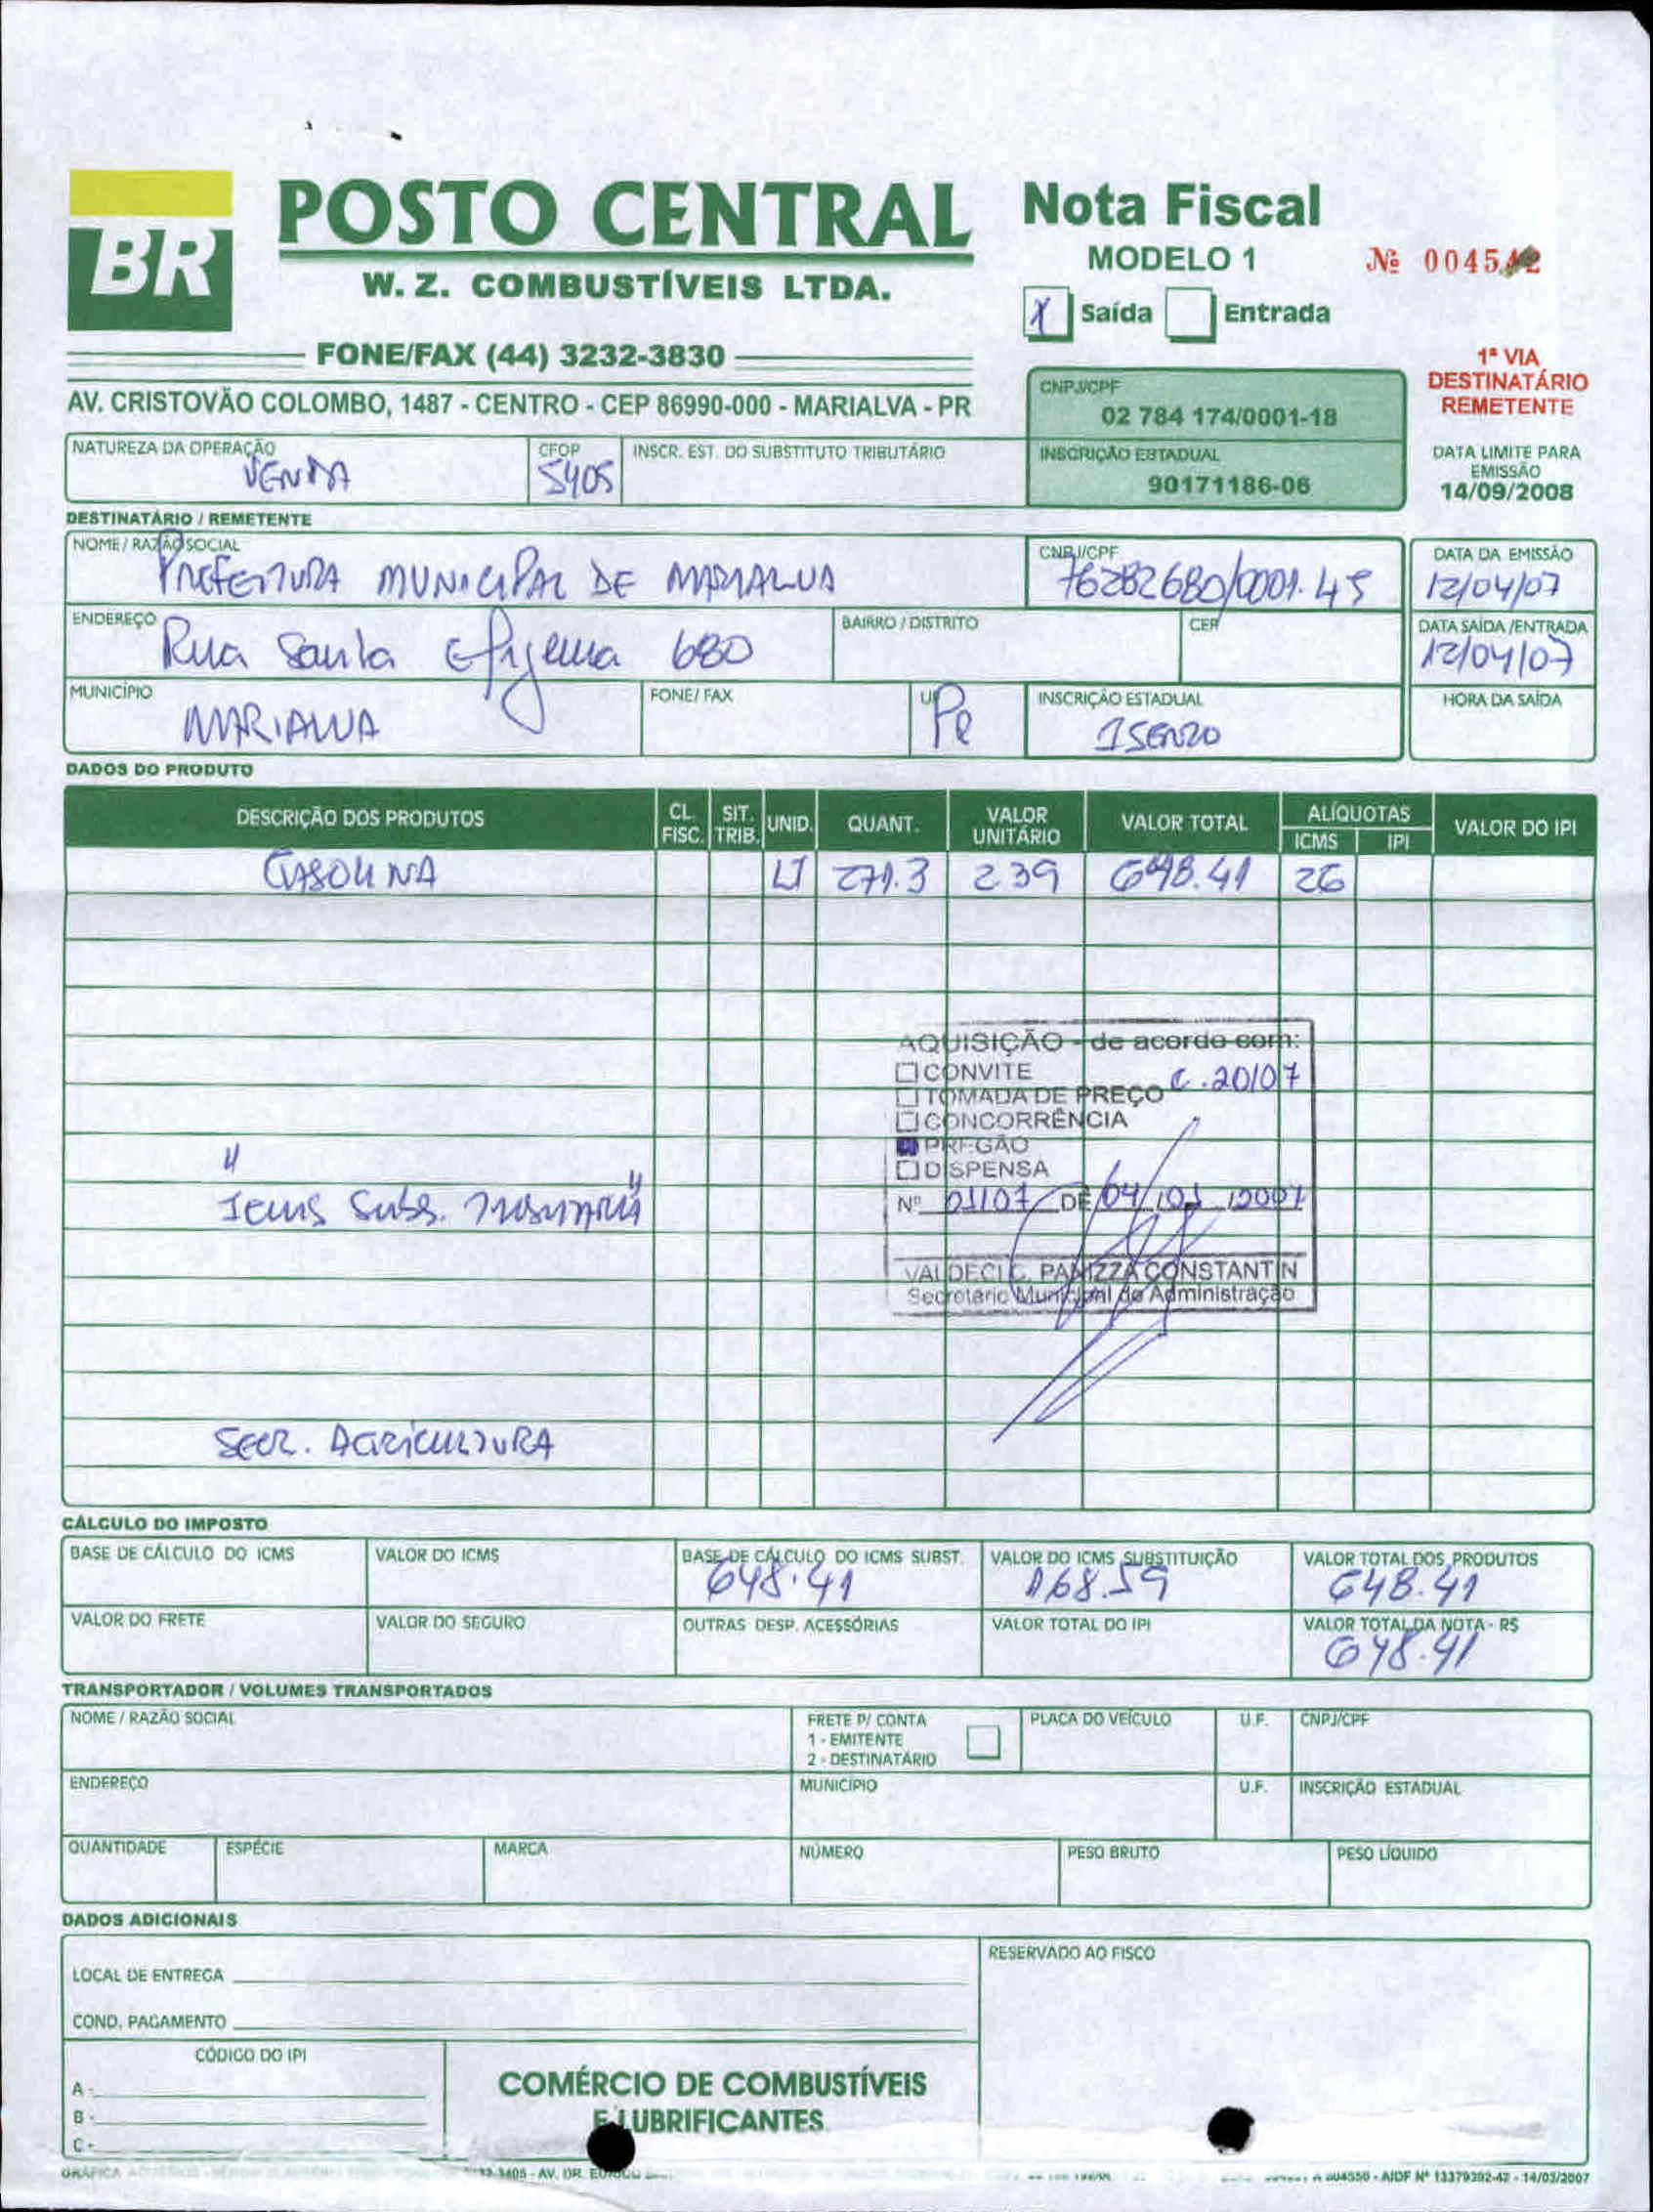 BR
POSTO CENTRAL
W. Z. COMBUSTÍVEIS LTDA.
FONE/FAX (44) 3232-3830
AV. CRISTOVÃO COLOMBO, 1487 - CENTRO - CEP 86990-000 - MARIALVA - PR
Nota Fiscal
MODELO 1
Nº 0045
X Saída Entrada
1ª VIA
DESTINATÁRIO
REMETENTE
CNPJ/CPF
02 784 174/0001-18
INSCRIÇÃO ESTADUAL
90171186-06
DATA LIMITE PARA
EMISSÃO
14/09/2008
NATUREZA DA OPERAÇÃO CFOP INSCR. EST. DO SUBSTITUTO TRIBUTÁRIO
VENDA 5405
DESTINATÁRIO / REMETENTE
NOME / RAZÃO SOCIAL CNPJ/CPF DATA DA EMISSÃO
PREFEITURA MUNICIPAL DE MARIALVA 76282680/0001.45 12/04/07
ENDEREÇO BAIRRO / DISTRITO CEP DATA SAÍDA /ENTRADA
Rua Santa Efigema 680 12/04/07
MUNICÍPIO FONE/ FAX UF INSCRIÇÃO ESTADUAL HORA DA SAÍDA
MARIALVA PR ISENTO
DADOS DO PRODUTO
DESCRIÇÃO DOS PRODUTOS CL. FISC. SIT. TRIB. UNID. QUANT. VALOR UNITÁRIO VALOR TOTAL ALÍQUOTAS ICMS IPI VALOR DO IPI
GASOLINA LT 271.3 239 648.41 26
AQUISIÇÃO - de acordo com:
CONVITE
TOMADA DE PREÇO C.20/07
CONCORRÊNCIA
PREGÃO
DISPENSA
Nº 01107 DE 04/01/2007
VALDECI C. PANIZZA CONSTANTIN
Secretário Municipal de Administração
" Icms Subs. "
SECR. AGRICULTURA
CÁLCULO DO IMPOSTO
BASE DE CÁLCULO DO ICMS VALOR DO ICMS BASE DE CÁLCULO DO ICMS SUBST. VALOR DO ICMS SUBSTITUIÇÃO VALOR TOTAL DOS PRODUTOS
648.41 168.59 648.41
VALOR DO FRETE VALOR DO SEGURO OUTRAS DESP. ACESSÓRIAS VALOR TOTAL DO IPI VALOR TOTAL DA NOTA - R$
648.41
TRANSPORTADOR / VOLUMES TRANSPORTADOS
NOME / RAZÃO SOCIAL FRETE P/ CONTA PLACA DO VEÍCULO U.F. CNPJ/CPF
1 - EMITENTE
2 - DESTINATÁRIO
ENDEREÇO MUNICÍPIO U.F. INSCRIÇÃO ESTADUAL
QUANTIDADE ESPÉCIE MARCA NÚMERO PESO BRUTO PESO LÍQUIDO
DADOS ADICIONAIS
LOCAL DE ENTREGA
COND. PAGAMENTO
RESERVADO AO FISCO
CÓDIGO DO IPI
A -
B -
C -
COMÉRCIO DE COMBUSTÍVEIS
E LUBRIFICANTES
GRÁFICA 3405 - AV. DR. A 004550 - AIDF Nº 13379392-42 - 14/03/2007